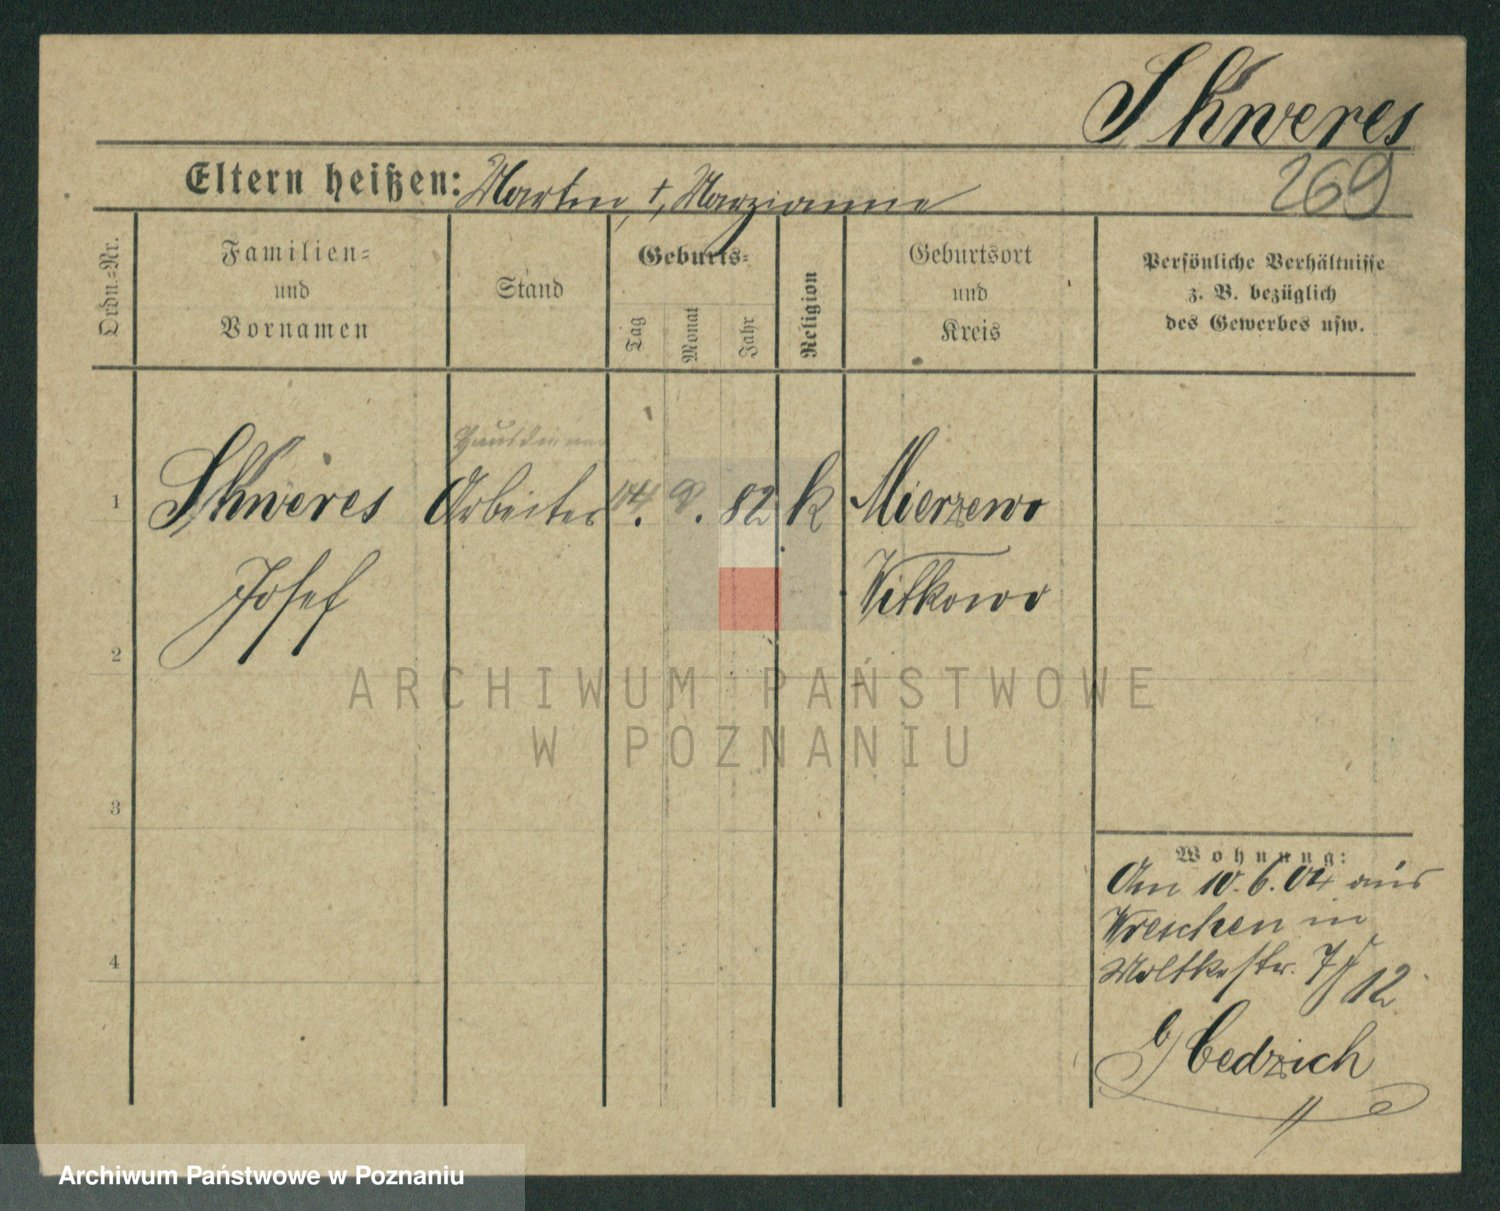 Skweres
269
Eltern heißen: Martin, †, Marzianne
Ordn.-Nr.
Familien-
und
Vornamen
Stand
Geburts-
Tag
Monat
Jahr
Religion
Geburtsort
und
Kreis
Persönliche Verhältnisse
z. B. bezüglich
des Gewerbes usw.
Hausdiener
1 Skweres Arbeiter 82 k Mierzewo
Josef Witkowo
2
3
4
Wohnung:
Am 10.6.04 aus
Wreschen in
Moltkestr. 12
b/ Cedzich
ARCHIWUM PAŃSTWOWE
W POZNANIU
Archiwum Państwowe w Poznaniu